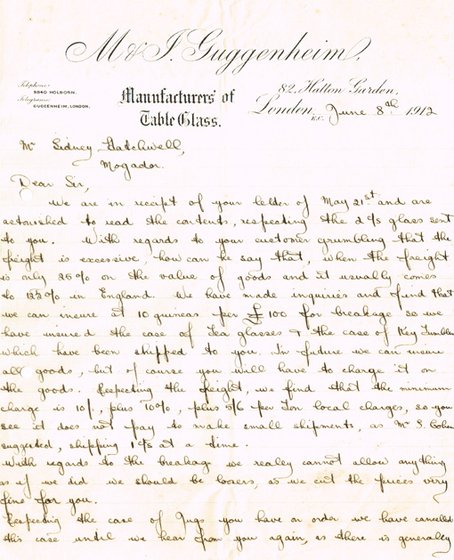 M & J. Guggenheim,
Telephone:
9840 HOLBORN.
Telegrams:
GUGGENHEIM, LONDON.
Manufacturers of
Table Glass.
82, Hatton Garden,
London, E.C. June 8th 1912
Mr Sidney Hatchwell,
Mogador.
Dear Sir,
We are in receipt of your letter of May 21st and are
astonished to read the contents, respecting the c/s glass sent
to you. With regards to your customer grumbling that the
freight is excessive, how can he say that, when the freight
is only 25% on the value of goods and it usually comes
to in England. We have made inquiries and find that
we can insure at 10 guineas per £100 for breakage so we
have insured the case of Tea glasses & the case of Key Tumblers
which have been shipped to you. In future we can insure
all goods, but of course you will have to charge it on
the goods. Respecting the freight, we find that the minimum
charge is 10/, plus 10%, plus 5/6 per Ton local charges, so you
see it does not pay to make small shipments, as Mr S. Cohen
suggested, shipping 1 c/s at a time.
With regards to the breakage we really cannot allow anything
as if we did we should be losers, as we cut the prices very
fine for you.
Respecting the case of Jugs you have on order we have cancelled
this case until we hear from you again, as there is generally